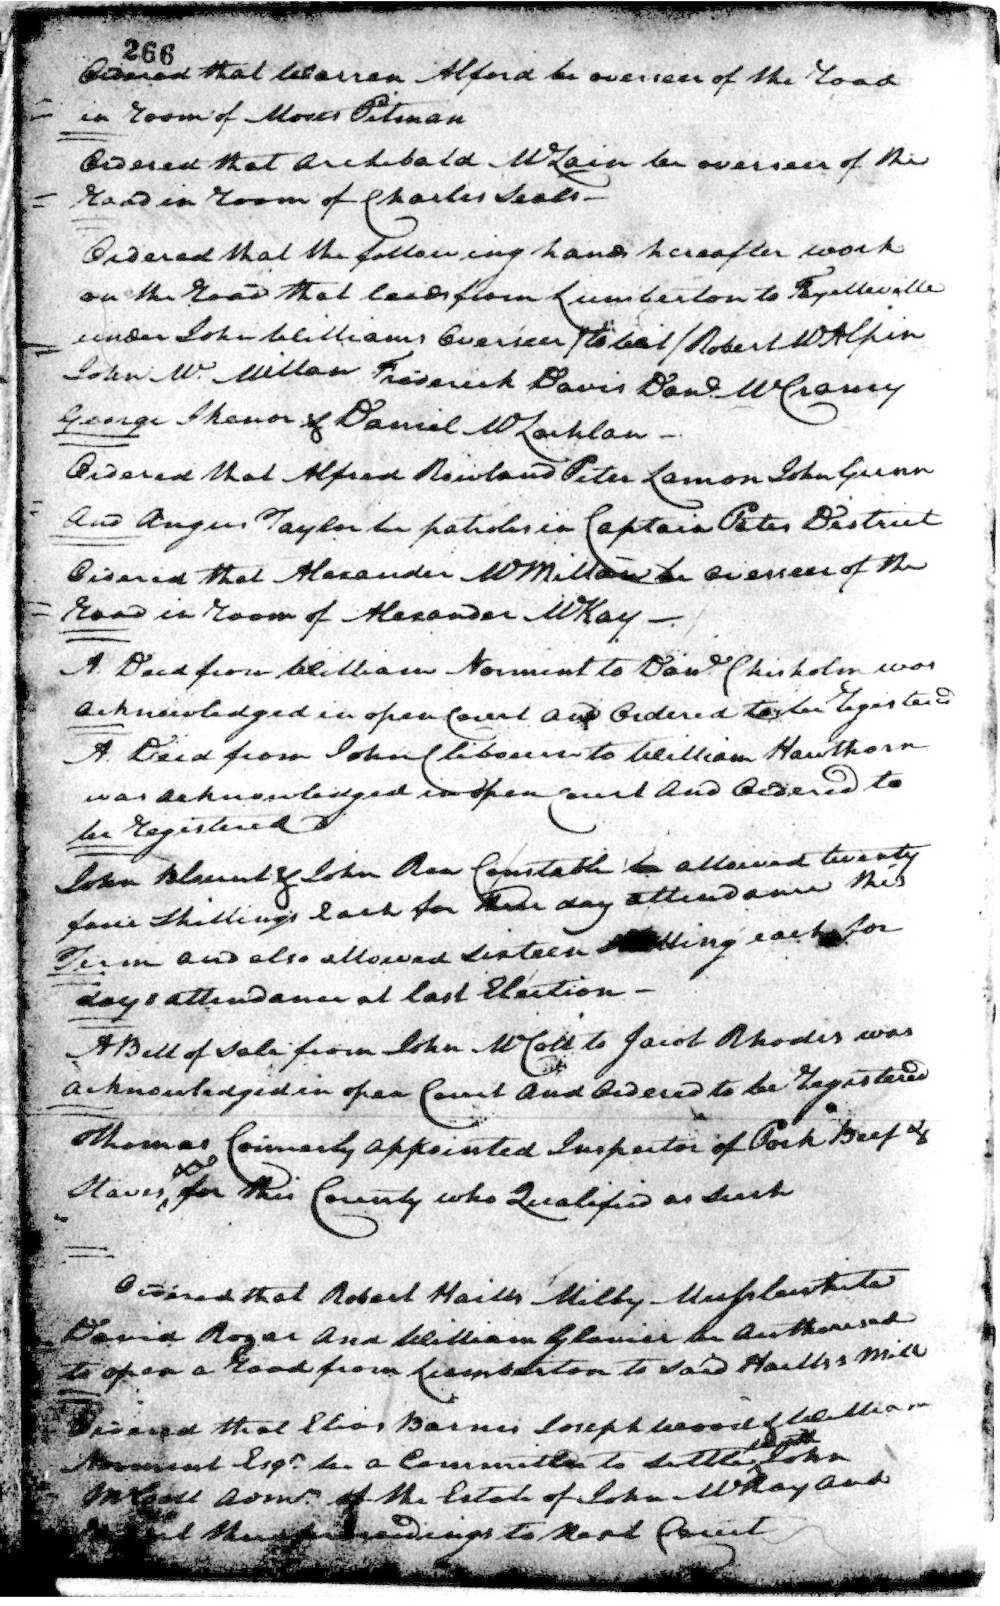 266
Ordered that Warren Alford be overseer of the Road
in room of Moses Pitman
Ordered that Archibald McLain be overseer of the
Road in room of Charles Seals —
Ordered that the following hands hereafter work
on the Road that leads from Lumberton to Fayetteville
under John Williams Overseer /to wit/ Robert McAlpin
John Mc Millan Frederick Davis Dand McCraney
George & Daniel McLachlan —
Ordered that Alfred Rowland Peter Lamon John Gunn
And Angus Taylor be patroles in Captain Pates District
Ordered that Alexander McMillan be overseer of the
Road in room of Alexander McKay —
A Deed from William Norment to Dand Chisholm was
acknowledged in open Court and Ordered to be Registered
A Deed from John Clibourn to William Hawthorn
was acknowledged in open Court And Ordered to
be Registered
John Blount & John Rea Constable be allowed twenty
four Shillings Each for three day attendance this
Term and also allowed sixteen each for
days attendance at last Election —
A Bill of Sale from John McColl to Jacob Rhodes was
acknowledged in open Court And Ordered to be Registered
Thomas Connerly appointed Inspector of Pork Beef &
Staves &c for this County who Qualified as such
Ordered that Robert Hailes Milby Musslewhite
David Rozar And William Glover be Authorised
to open a Road from Lumberton to said Hailes's Mill
Ordered that Elias Barnes Joseph Wood & William
Norment Esqr be a Committee to settle with John
McColl Admr of the Estate of John McKay And
their proceedings to next Court